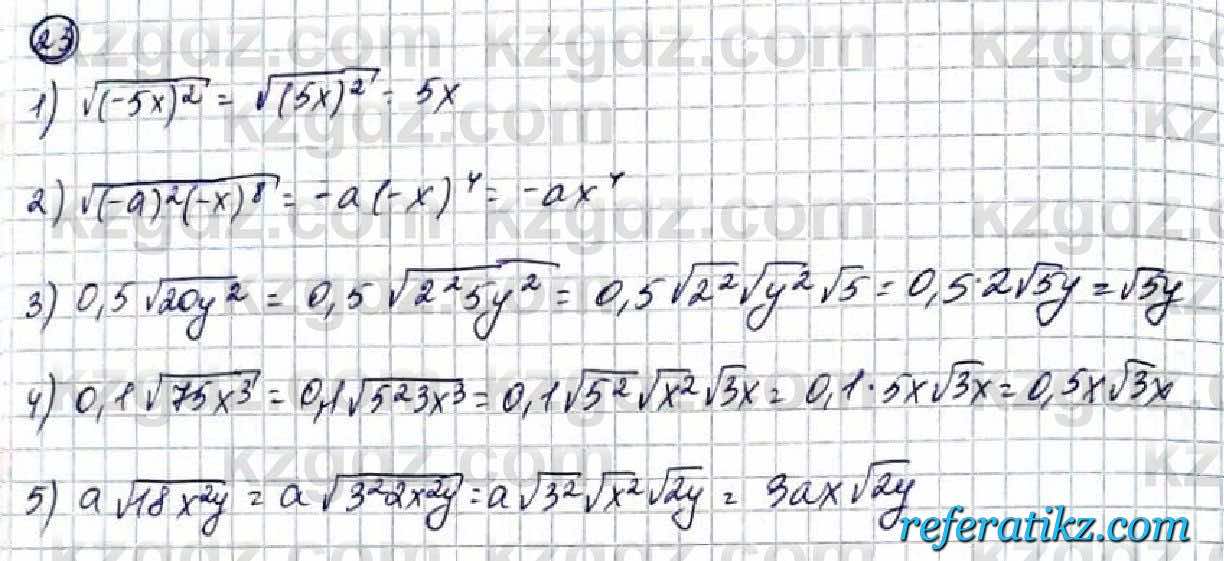 23
1) √(-5x)² = √(5x)² = 5x
2) √(-a)²(-x)⁸ = -a(-x)⁴ = -ax⁴
3) 0,5√20y² = 0,5√2²5y² = 0,5√2²√y²√5 = 0,5·2√5y = √5y
4) 0,1√75x³ = 0,1√5²3x³ = 0,1√5²√x²√3x = 0,1·5x√3x = 0,5x√3x
5) a√18x²y = a√3²2x²y = a√3²√x²√2y = 3ax√2y
referatikz.com
kzgdz.com